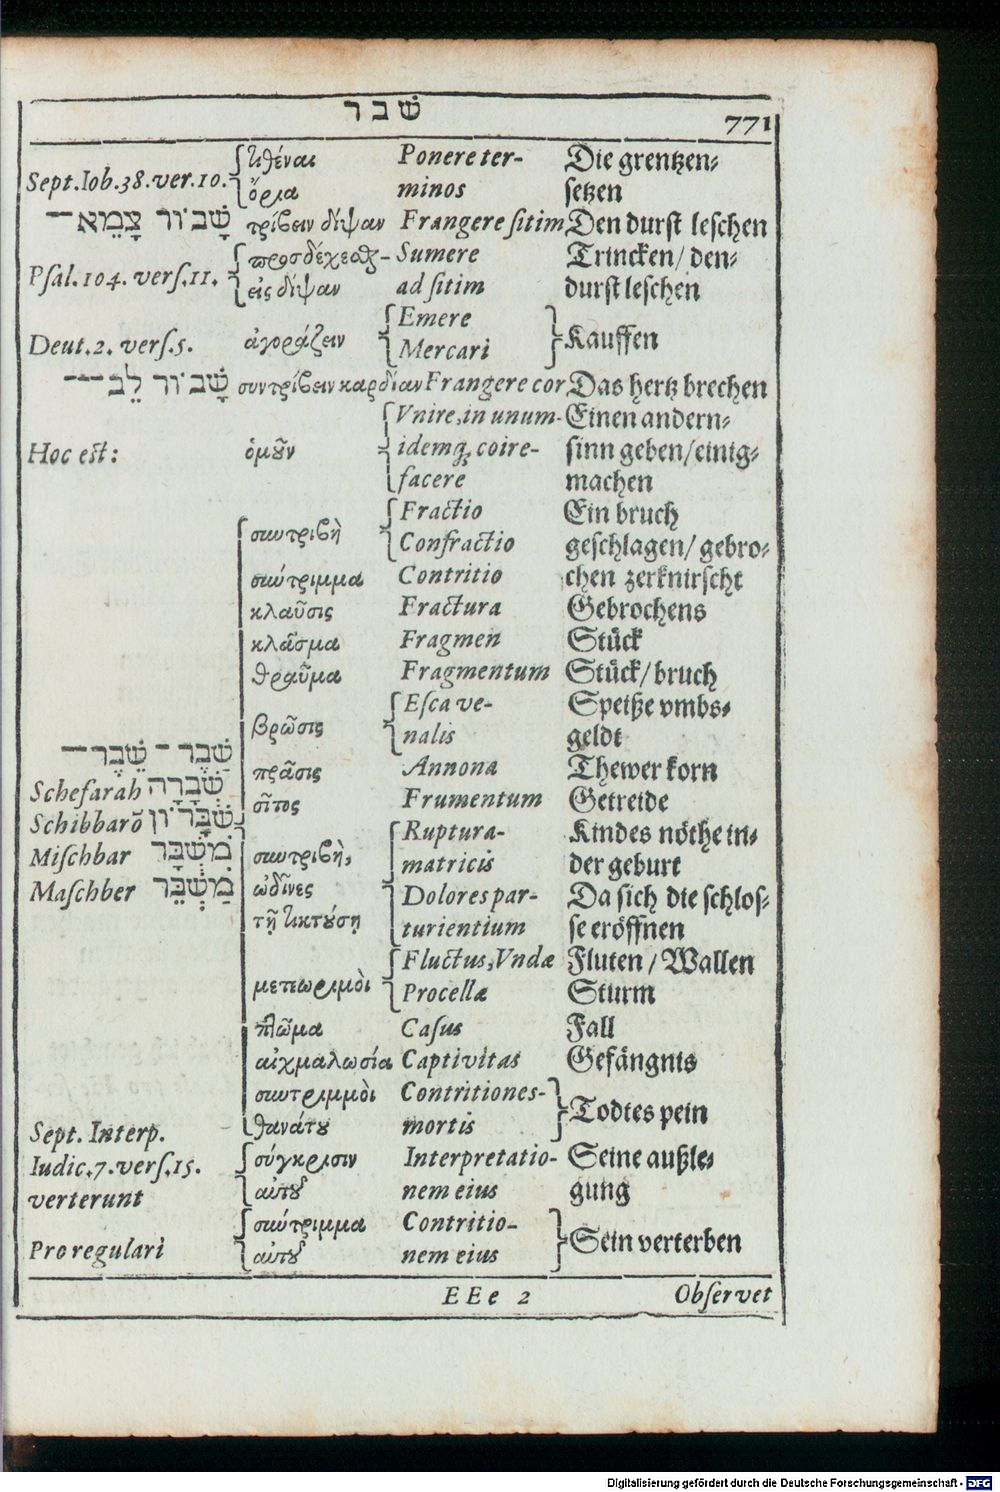 שׁבר 771
Sept. Iob. 38. ver. 10. τιθέναι Ponere ter- Die grentzen-
ὅρια minos setzen
שָׁבוֹר צָמֵא— τρίβειν δίψαν Frangere sitim Den durst leschen
Psal. 104. vers. 11. προσδέχεσθ- Sumere Trincken/ den-
εἰς δίψαν ad sitim durst leschen
Emere
Deut. 2. vers. 5. ἀγοράζειν Mercari Kauffen
שָׁבוֹר לֵב— συντρίβειν καρδίαν Frangere cor Das hertz brechen
Vnire, in unum- Einen andern-
Hoc est: ὁμοῦν idemq; coire- sinn geben/einig-
facere machen
Fractio Ein bruch
συντριβὴ Confractio geschlagen/ gebro-
σύντριμμα Contritio chen zerknirscht
κλαῦσις Fractura Gebrochens
κλάσμα Fragmen Stück
θραῦμα Fragmentum Stück/ bruch
Esca ve- Speiße vmbs-
βρῶσις nalis geldt
שֵׁבֶר — שֶׁבֶר— πρᾶσις Annona Thewer korn
Schefarah שְׁבָרָה σῖτος Frumentum Getreide
Schibbarõ שִׁבָּרוֹן Ruptura- Kindes nöthe in-
Mischbar מִשְׁבָּר συντριβὴ, matricis der geburt
Maschber מַשְׁבֵּר ὠδῖνες Dolores par- Da sich die schlos-
τῇ τικτούσῃ turientium se eröffnen
Fluctus, Vndæ Fluten / Wallen
μετεωρισμοὶ Procellæ Sturm
πτῶμα Casus Fall
αἰχμαλωσία Captivitas Gefängnis
συντριμμοὶ Contritiones-
Sept. Interp. θανάτου mortis Todtes pein
Iudic. 7. vers. 15. σύγκρισιν Interpretatio- Seine außle-
verterunt αὐτοῦ nem eius gung
σύντριμμα Contritio-
Pro regulari αὐτοῦ nem eius Sein verterben
EEe 2 Observet
Digitalisierung gefördert durch die Deutsche Forschungsgemeinschaft - DFG